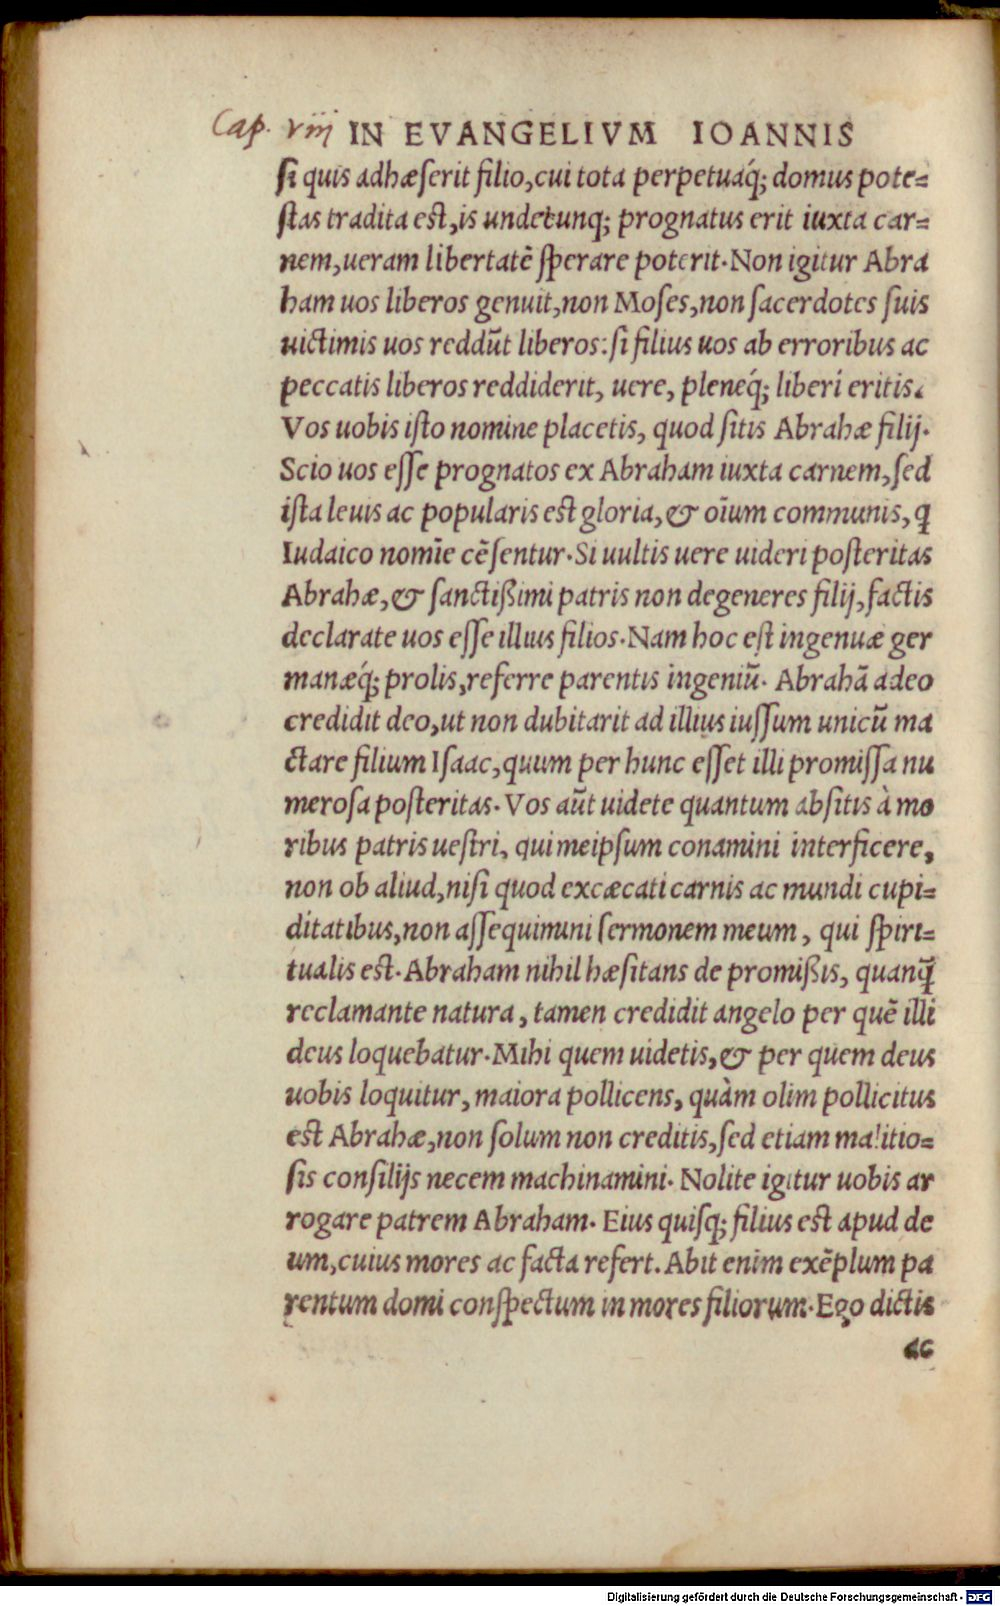 Cap. viij IN EVANGELIVM IOANNIS
si quis adhæserit filio, cui tota perpetuáq; domus pote-
stas tradita est, is undecunq; prognatus erit iuxta car-
nem, ueram libertatē sperare poterit. Non igitur Abra
ham uos liberos genuit, non Moses, non sacerdotes suis
uictimis uos reddūt liberos: si filius uos ab erroribus ac
peccatis liberos reddiderit, uere, plenéq; liberi eritis.
Vos uobis isto nomine placetis, quod sitis Abrahæ filij.
Scio uos esse prognatos ex Abraham iuxta carnem, sed
ista leuis ac popularis est gloria, & oīum communis, q̄
Iudaico nomīe cēsentur. Si uultis uere uideri posteritas
Abrahæ, & sanctißimi patris non degeneres filij, factis
declarate uos esse illius filios. Nam hoc est ingenuæ ger
manæq́; prolis, referre parentis ingeniū. Abrahā adeo
credidit deo, ut non dubitarit ad illius iussum unicū ma
ctare filium Isaac, quum per hunc esset illi promissa nu
merosa posteritas. Vos aūt uidete quantum absitis à mo
ribus patris uestri, qui meipsum conamini interficere,
non ob aliud, nisi quod excæcati carnis ac mundi cupi-
ditatibus, non assequimini sermonem meum, qui spiri-
tualis est. Abraham nihil hæsitans de promißis, quanq̄
reclamante natura, tamen credidit angelo per quē illi
deus loquebatur. Mihi quem uidetis, & per quem deus
uobis loquitur, maiora pollicens, quàm olim pollicitus
est Abrahæ, non solum non creditis, sed etiam malitio-
sis consilijs necem machinamini. Nolite igitur uobis ar
rogare patrem Abraham. Eius quisq; filius est apud de
um, cuius mores ac facta refert. Abit enim exēplum pa
rentum domi conspectum in mores filiorum. Ego dictis
ac
Digitalisierung gefördert durch die Deutsche Forschungsgemeinschaft - DFG